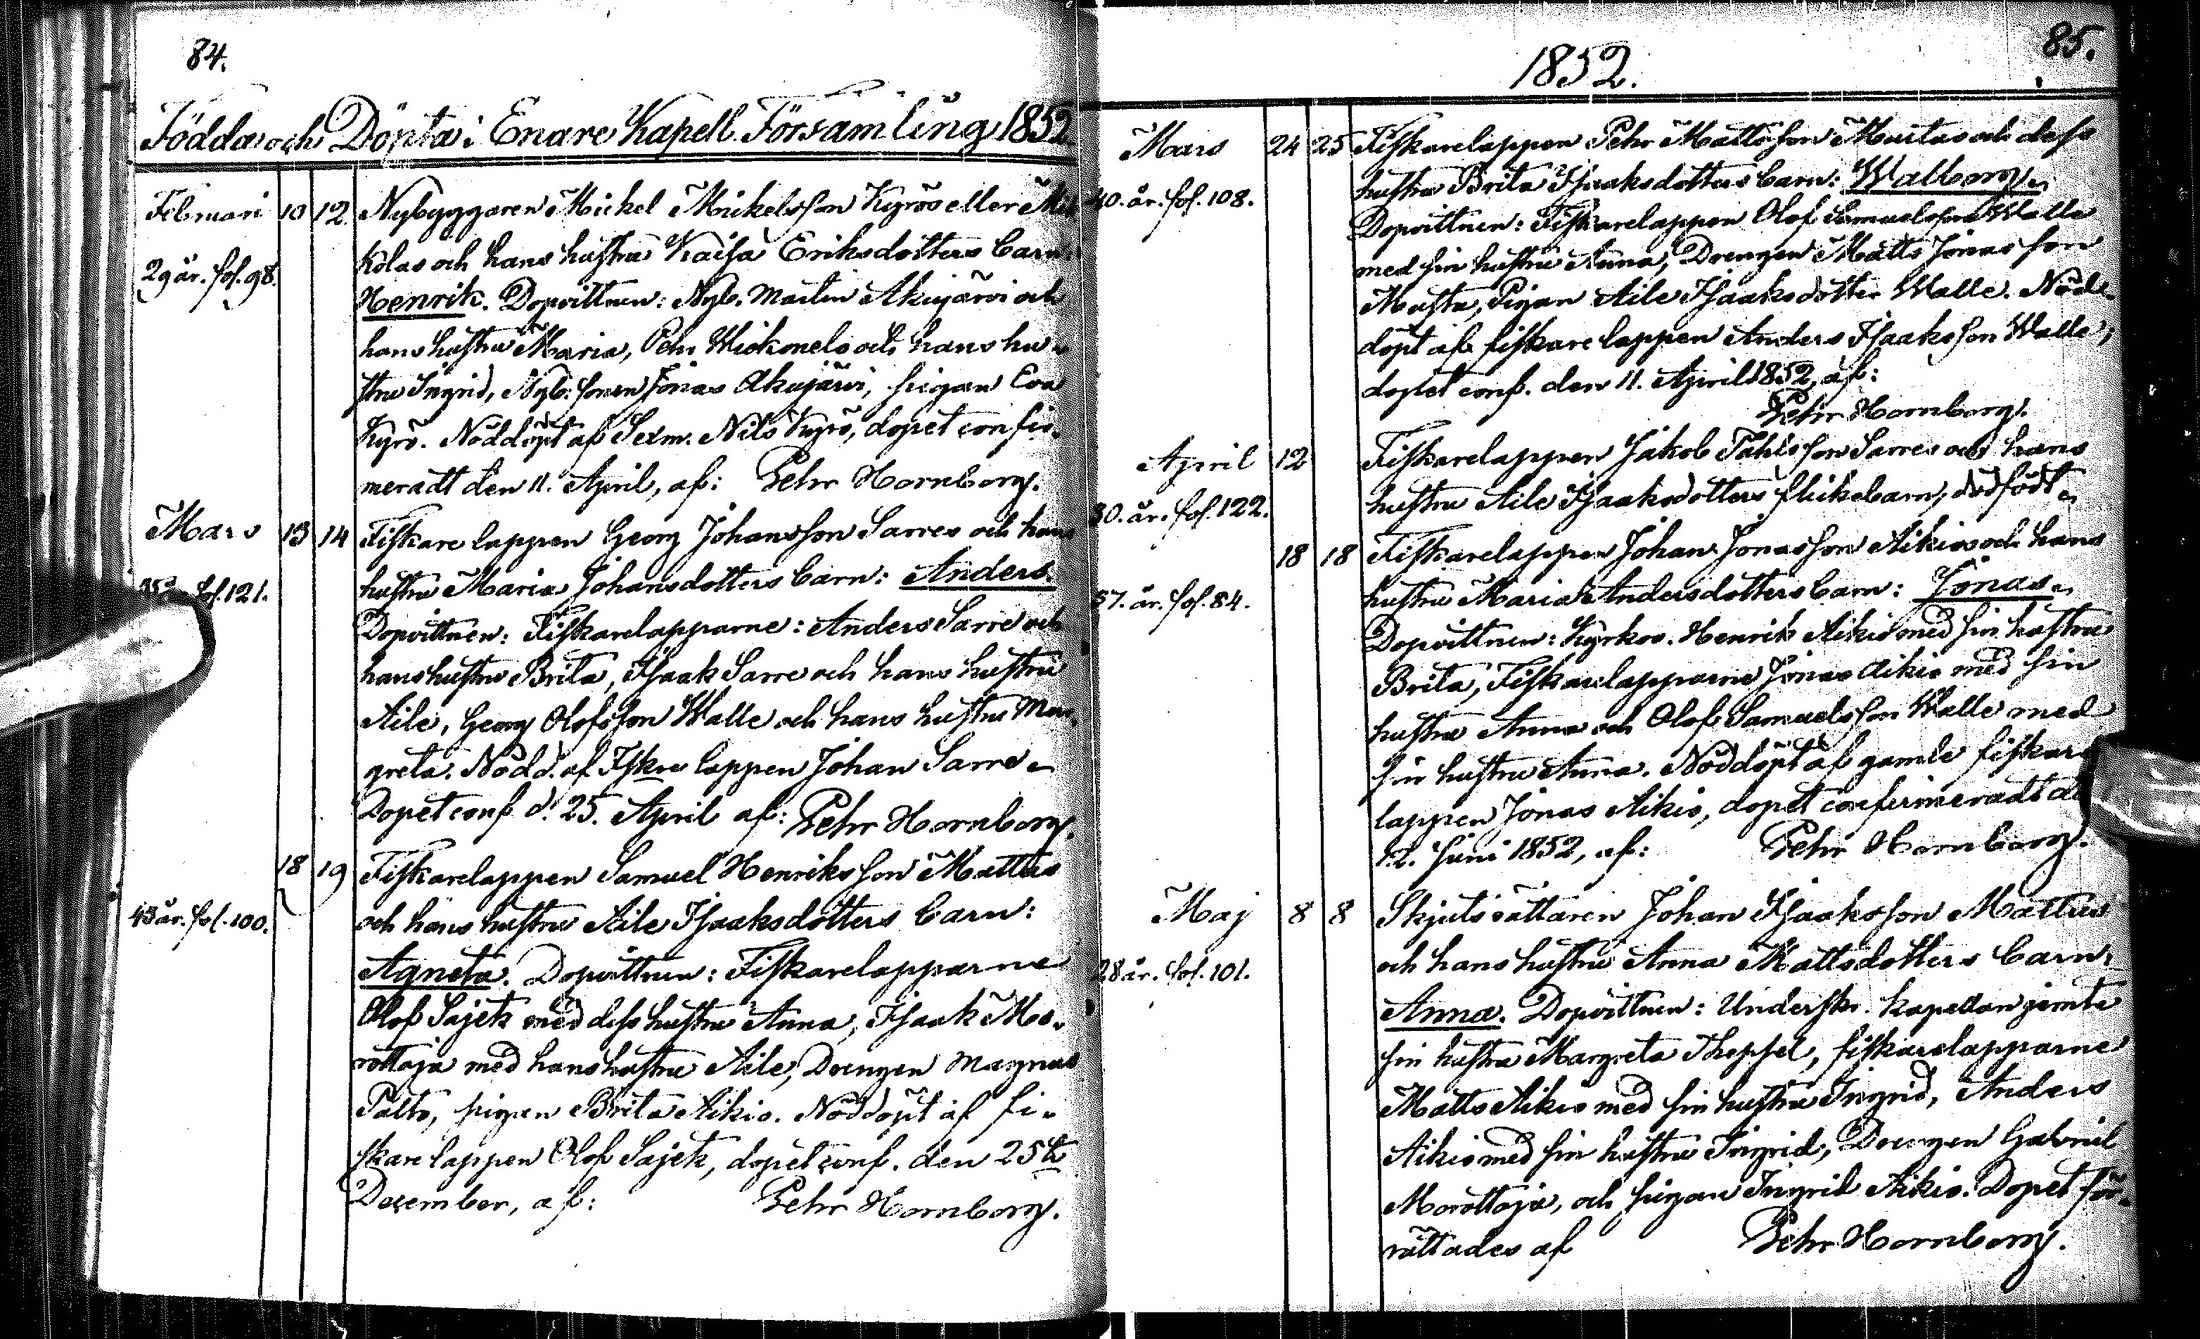 84.
Födda och Döpta i Enare Kapell Församling 1852
Februari 10 12 Nybyggaren Michel Mickelsson Kyrö eller Mik
kolas och hans hustru Kaisa Eriksdotters barn:
29 år. fol. 98. Henrik. Dopvittnen: Nyb. Martin Akujärvi och
hans hustru Maria, Pehr Mickonels och hans hu-
stru Ingrid, Nyb: sonen Jonas Akujärvi, pigan Eva
Kyrö. Nöddöpt af Sexm. Nils Kyrö, dopet confir-
meradt den 11. April, af: Pehr Hornborg.
Mars 13 14 Fiskarelappen Georg Johansson Sarres och hans
fol. 121. hustru Maria Johansdotters barn: Anders.
Dopvittnen: Fiskarelapparne: Anders Sarre och
hans hustru Brita, Isaak Sarre och hans hustru
Aile, Georg Olofsson Walle och hans hustru Mar-
greta. Nödd. af Fiskre lappen Johan Sarre.
Dopet conf d. 25. April af: Pehr Hornborg.
18 19 Fiskarelappen Samuel Henriksson Mattus
43 år. fol. 100. och hans hustru Aile Isaaksdotters barn:
Agneta. Dopvittnen: Fiskarelapparne
Olof Sajek med dess hustru Anna, Isaak Mo-
rottaja med hans hustru Aile, Drengen Magnus
Palto, pigan Brita Aikio. Nöddöpt af fi-
skarelappen Olof Sajek, dopet conf. den 25te
December, af: Pehr Hornborg.
85.
1852.
Mars 24 25 Fiskarelappen Pehr Mattsson Mustas och dess
40. år. fol. 108. hustru Brita Isaaksdotters barn: Walborg.
Dopvittnen: Fiskarelappen Olof Samuelsson Walle
med sin hustru Anna, Drengen Matts Jonasson
Musta, Pigan Aile Isaaksdotter Walle. Nöd-
döpt af fiskarelappen Anders Isaaksson Walle;
dopet conf. den 11. April 1852, af:
Pehr Hornborg.
April 12 Fiskarelappen Jakob Pahlsson Sarres och hans
30. år. fol. 122. hustru Aile Isaaksdotters flickebarn, dödfödt.
18 18 Fiskarelappen Johan Jonasson Aikios och hans
37. år. fol. 84. hustru Maria Andersdotters barn: Jonas.
Dopvittnen: Kyrkov. Henrik Aikio med sin hustru
Brita, Fiskarelapparne Jonas Aikio med sin
hustru Anna och Olof Samuelsson Walle med
sin hustru Anna. Nöddöpt af gamle fiskare
lappen Jonas Aikio, dopet confirmeradt d.
12. Juni 1852, af: Pehr Hornborg.
Maj 8 8 Skjutsrättaren Johan Isaaksson Mattus
28 år. fol. 101. och hans hustru Anna Mattsdotters barn:
Anna. Dopvittnen: Underskr. kapellan jemte
sin hustru Margreta Thepsel, fiskarelapparne
Matts Aikio med sin hustru Ingrid, Anders
Aikio med sin hustru Ingrid, Drengen Gabriel
Morottaja, och pigan Ingrid Aikio. Dopet för-
rättades af Pehr Hornborg.